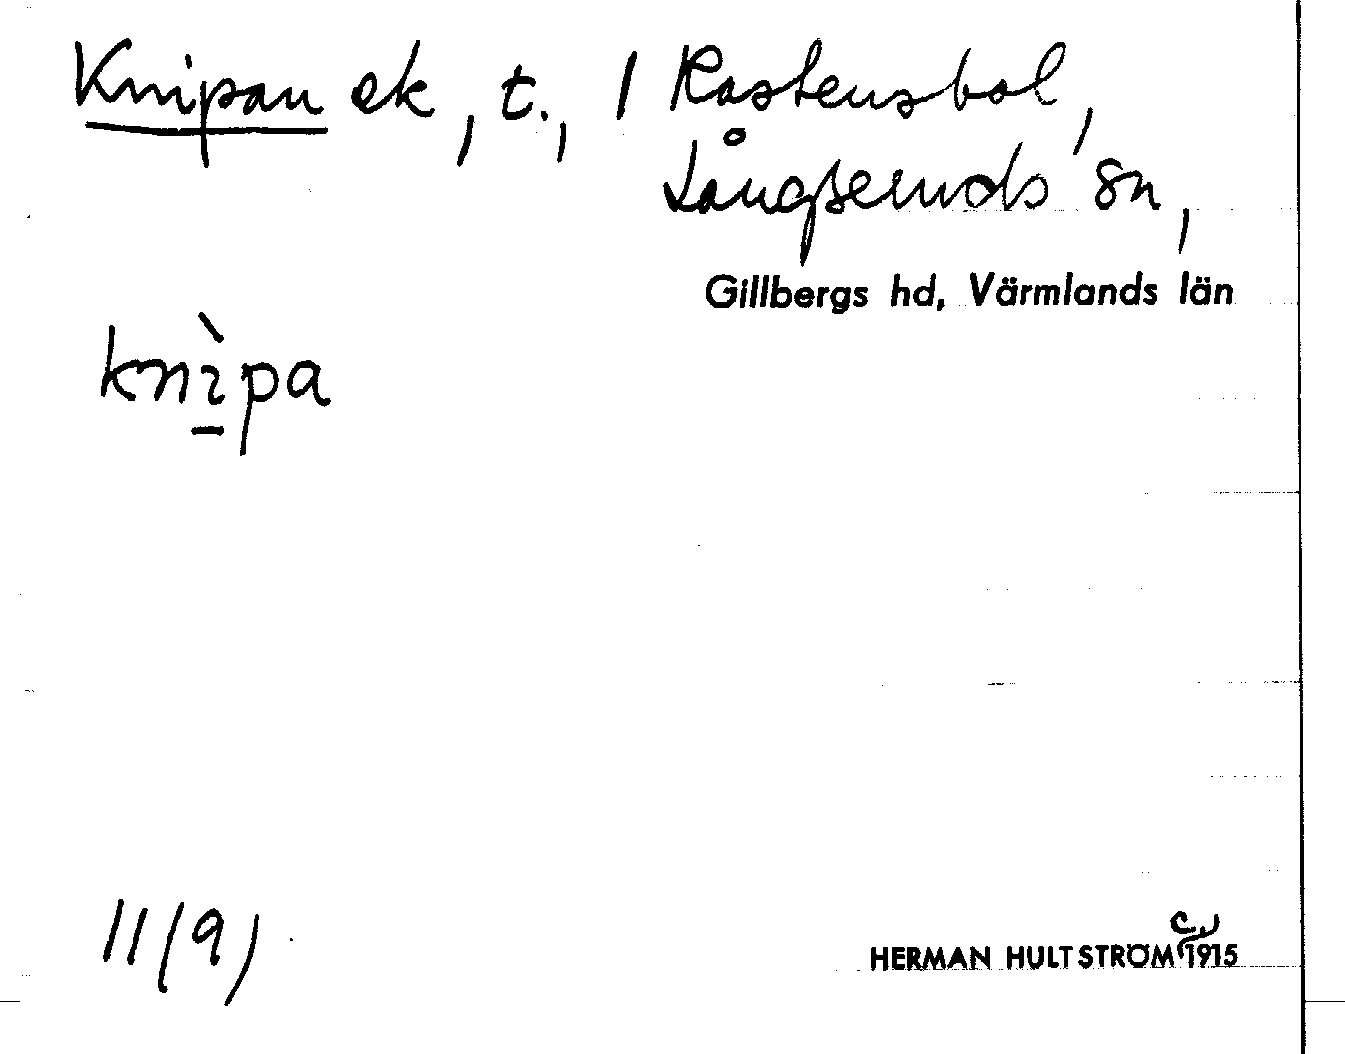 Knipan ek, t., / Rostensbol,
Långseruds sn,
Gillbergs hd, Värmlands län
knìpa
11(9)
c.
HERMAN HULTSTRÖM 1915